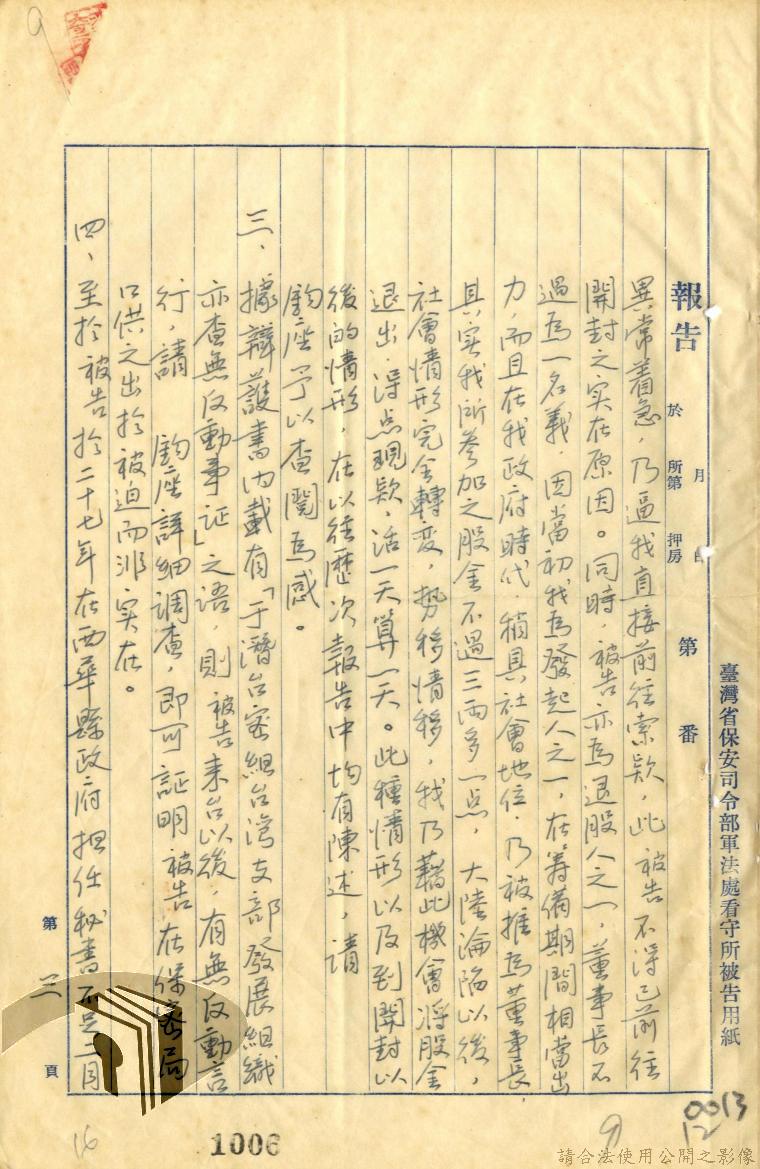 臺灣省保安司令部軍法處看守所被告用紙
報告
於 月 日
所第 押房
第 番
異常着急，乃逼我直接前往索款，此被告不得已前往
開封之实在原因。同時，被告亦為退股人之一，董事長不
過為一名義，因當初我為發起人之一，在籌備期間相當出
力，而且在我政府時代，稍具社會地位，乃被推為董事長，
其实我所參加之股金不過三兩多一点，大陸淪陷以後，
社會情形完全轉变，勢移情移，我乃藉此機會将股金
退出，得点現款，活一天算一天。此種情形以及到開封以
後的情形，在以往歷次報告中均有陳述，請
鈞座予以查閱為感。
三、據辯護書内載有「于潛台密組台湾支部發展組織
亦查無反動事証」之語，則被告来台以後，有無反動言
行，請 鈞座詳細調查，即可証明被告在保密局
口供之出於被迫而非实在。
四、至於被告於二十七年在西華縣政府担任秘書不足二月
第 三 頁
16
1006
9
0013
12
9
請合法使用公開之影像